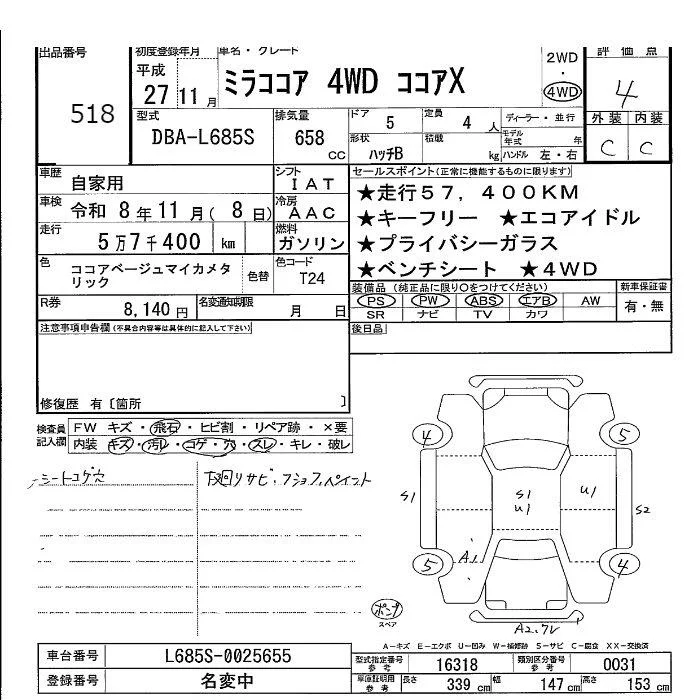 出品番号 518
初度登録年月 平成 27 11月
車名・グレード ミラココア 4WD ココアX
2WD・4WD
評価点 4
型式 DBA-L685S
排気量 658 CC
ドア 5
定員 4 人
ディーラー・並行
形状 ハッチB
積載 kg
モデル年式 年
ハンドル 左・右
外装 C
内装 C
車歴 自家用
シフト IAT
車検 令和 8年11月(8日)
冷房 AAC
走行 5万7千400 km
燃料 ガソリン
色 ココアベージュマイカメタリック
色替
色コード T24
R券 8,140円
名変通知期限 月 日
セールスポイント(正常に機能するものに限ります)
★走行57,400KM
★キーフリー ★エコアイドル
★プライバシーガラス
★ベンチシート ★4WD
装備品(純正品に限り○をつけてください)
PS PW ABS エアB AW
SR ナビ TV カワ
新車保証書 有・無
後日品
注意事項申告欄(不具合内容等は具体的に記入して下さい)
修復歴 有〔箇所 〕
検査員記入欄
FW キズ・飛石・ヒビ割・リペア跡・×要
内装 キズ・汚レ・コゲ・穴・スレ・キレ・破レ
シートコゲ穴
下回リサビ・フショク,ペイント
4 5
S1 S1 U1 U1 S2
A1
5 4
ポンプ
スペア
A2,フレ
A-キズ E-エクボ U-凹み W-補修跡 S-サビ C-腐食 XX-交換済
車台番号 L685S-0025655
登録番号 名変中
型式指定番号 参考 16318
類別区分番号 参考 0031
車庫証明用 参考 長さ 339 cm 幅 147 cm 高さ 153 cm